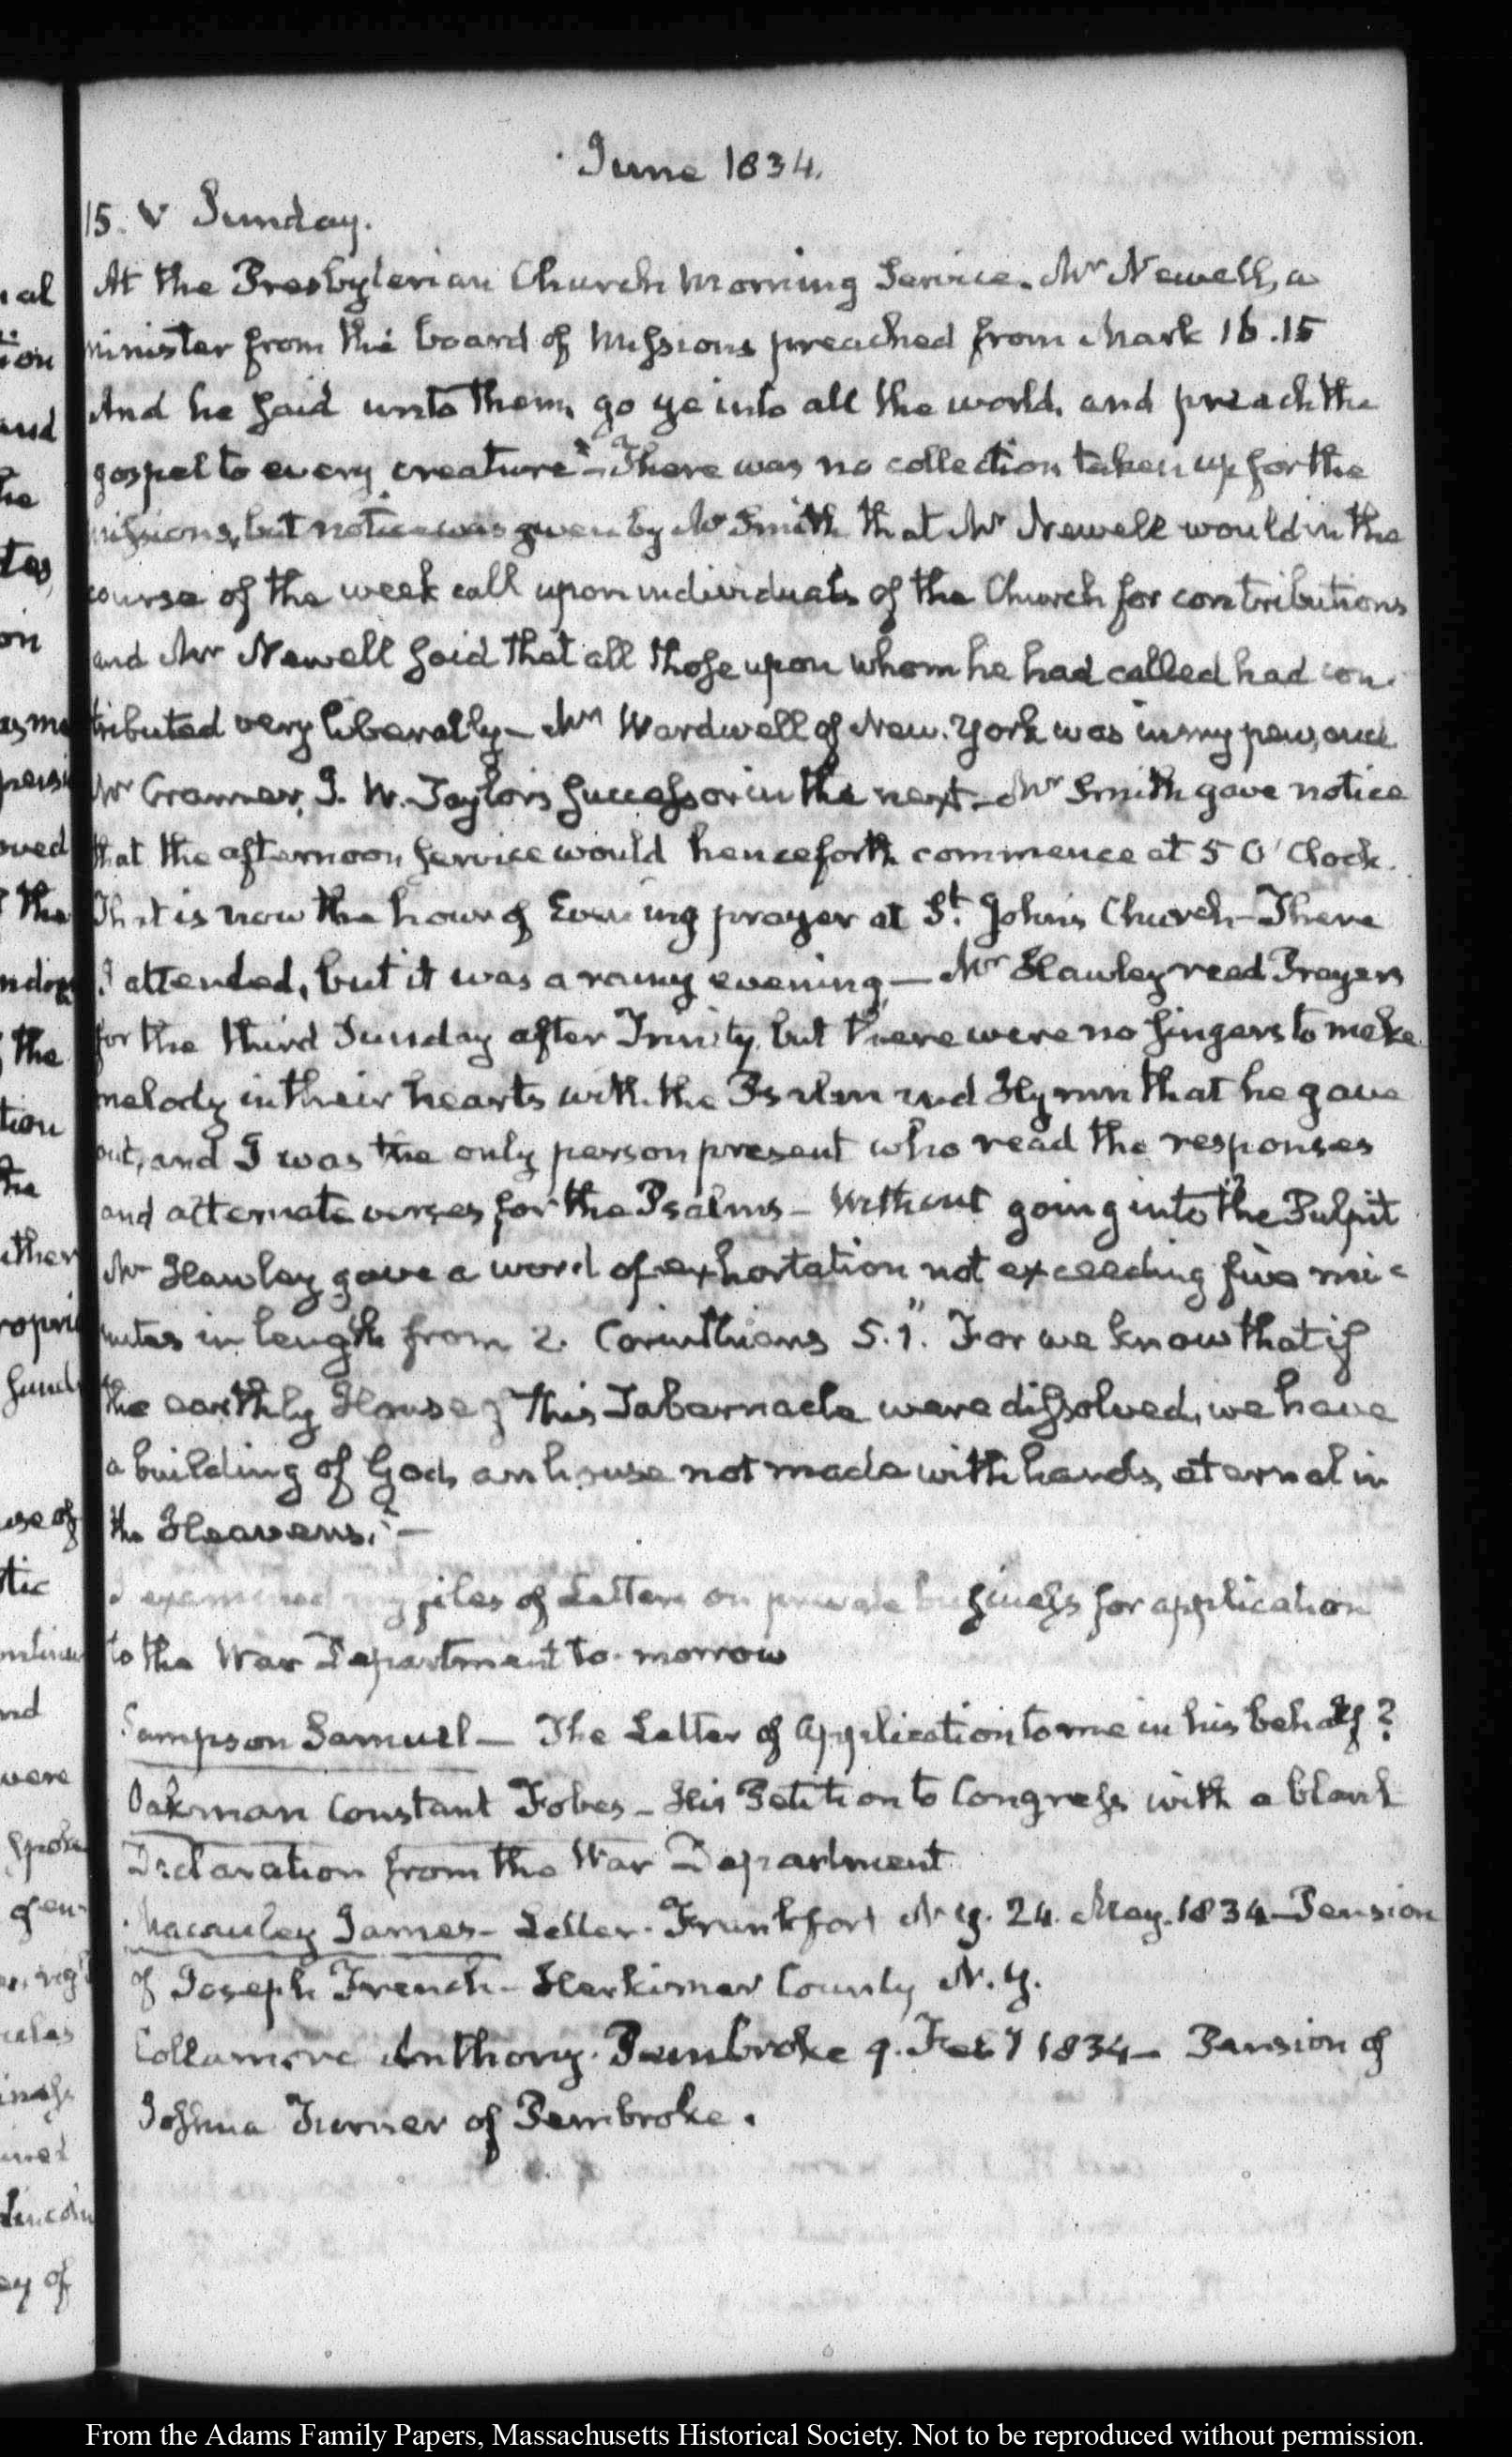 June 1834.
15. V Sunday.
At the Presbyterian Church Morning Service. Mr Newell, a
minister from the board of Missions preached from Mark 16.15
And he said unto them, go ye into all the world, and preach the
gospel to every creature" – There was no collection taken up for the
missions, but notice was given by Mr Smith that Mr Newell would in the
course of the week call upon individuals of the Church for contributions
and Mr Newell said that all those upon whom he had called had con-
tributed very liberally – Mr Wardwell of New-York was in my pew, and
Mr Cramer, J. W. Taylor's successor in the next – Mr Smith gave notice
that the afternoon service would henceforth commence at 5 O'Clock.
That is now the hour of Evening prayer at St. John's Church – There
I attended, but it was a rainy evening – Mr Hawley read Prayers
for the third Sunday after Trinity, but there were no singers to make
melody in their hearts with the Psalm and Hymn that he gave
out, and I was the only person present who read the responses
and alternate verses for the Psalms – Without going into the Pulpit
Mr Hawley gave a word of exhortation not exceeding five mi-
nutes in length from 2. Corinthians 5.1. "For we know that if
the earthly House of this Tabernacle were dissolved, we have
a building of God, an house not made with hands, eternal in
the Heavens." –
I examined my files of Letters on private business for application
to the War Department to-morrow
Sampson Samuel – The Letter of Application to me in his behalf?
Oakman Constant Fobes – His Petition to Congress with a blank
Declaration from the War Department
Macauley James – Letter. Frankfort N.Y. 24. May. 1834 – Pension
of Joseph French – Herkimer County N.Y.
Collamore Anthony. Pembroke 9. Feby 1834 – Pension of
Joshua Turner of Pembroke.
From the Adams Family Papers, Massachusetts Historical Society. Not to be reproduced without permission.